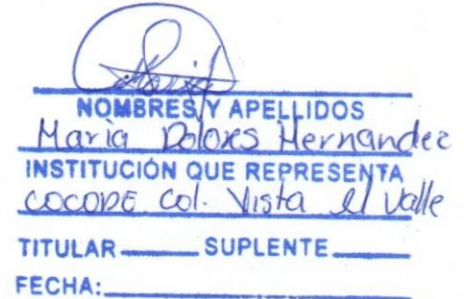 NOMBRES Y APELLIDOS
Maria Dolores Hernandez
INSTITUCIÓN QUE REPRESENTA
COCODE Col. Vista el Valle
TITULAR______ SUPLENTE______
FECHA:______